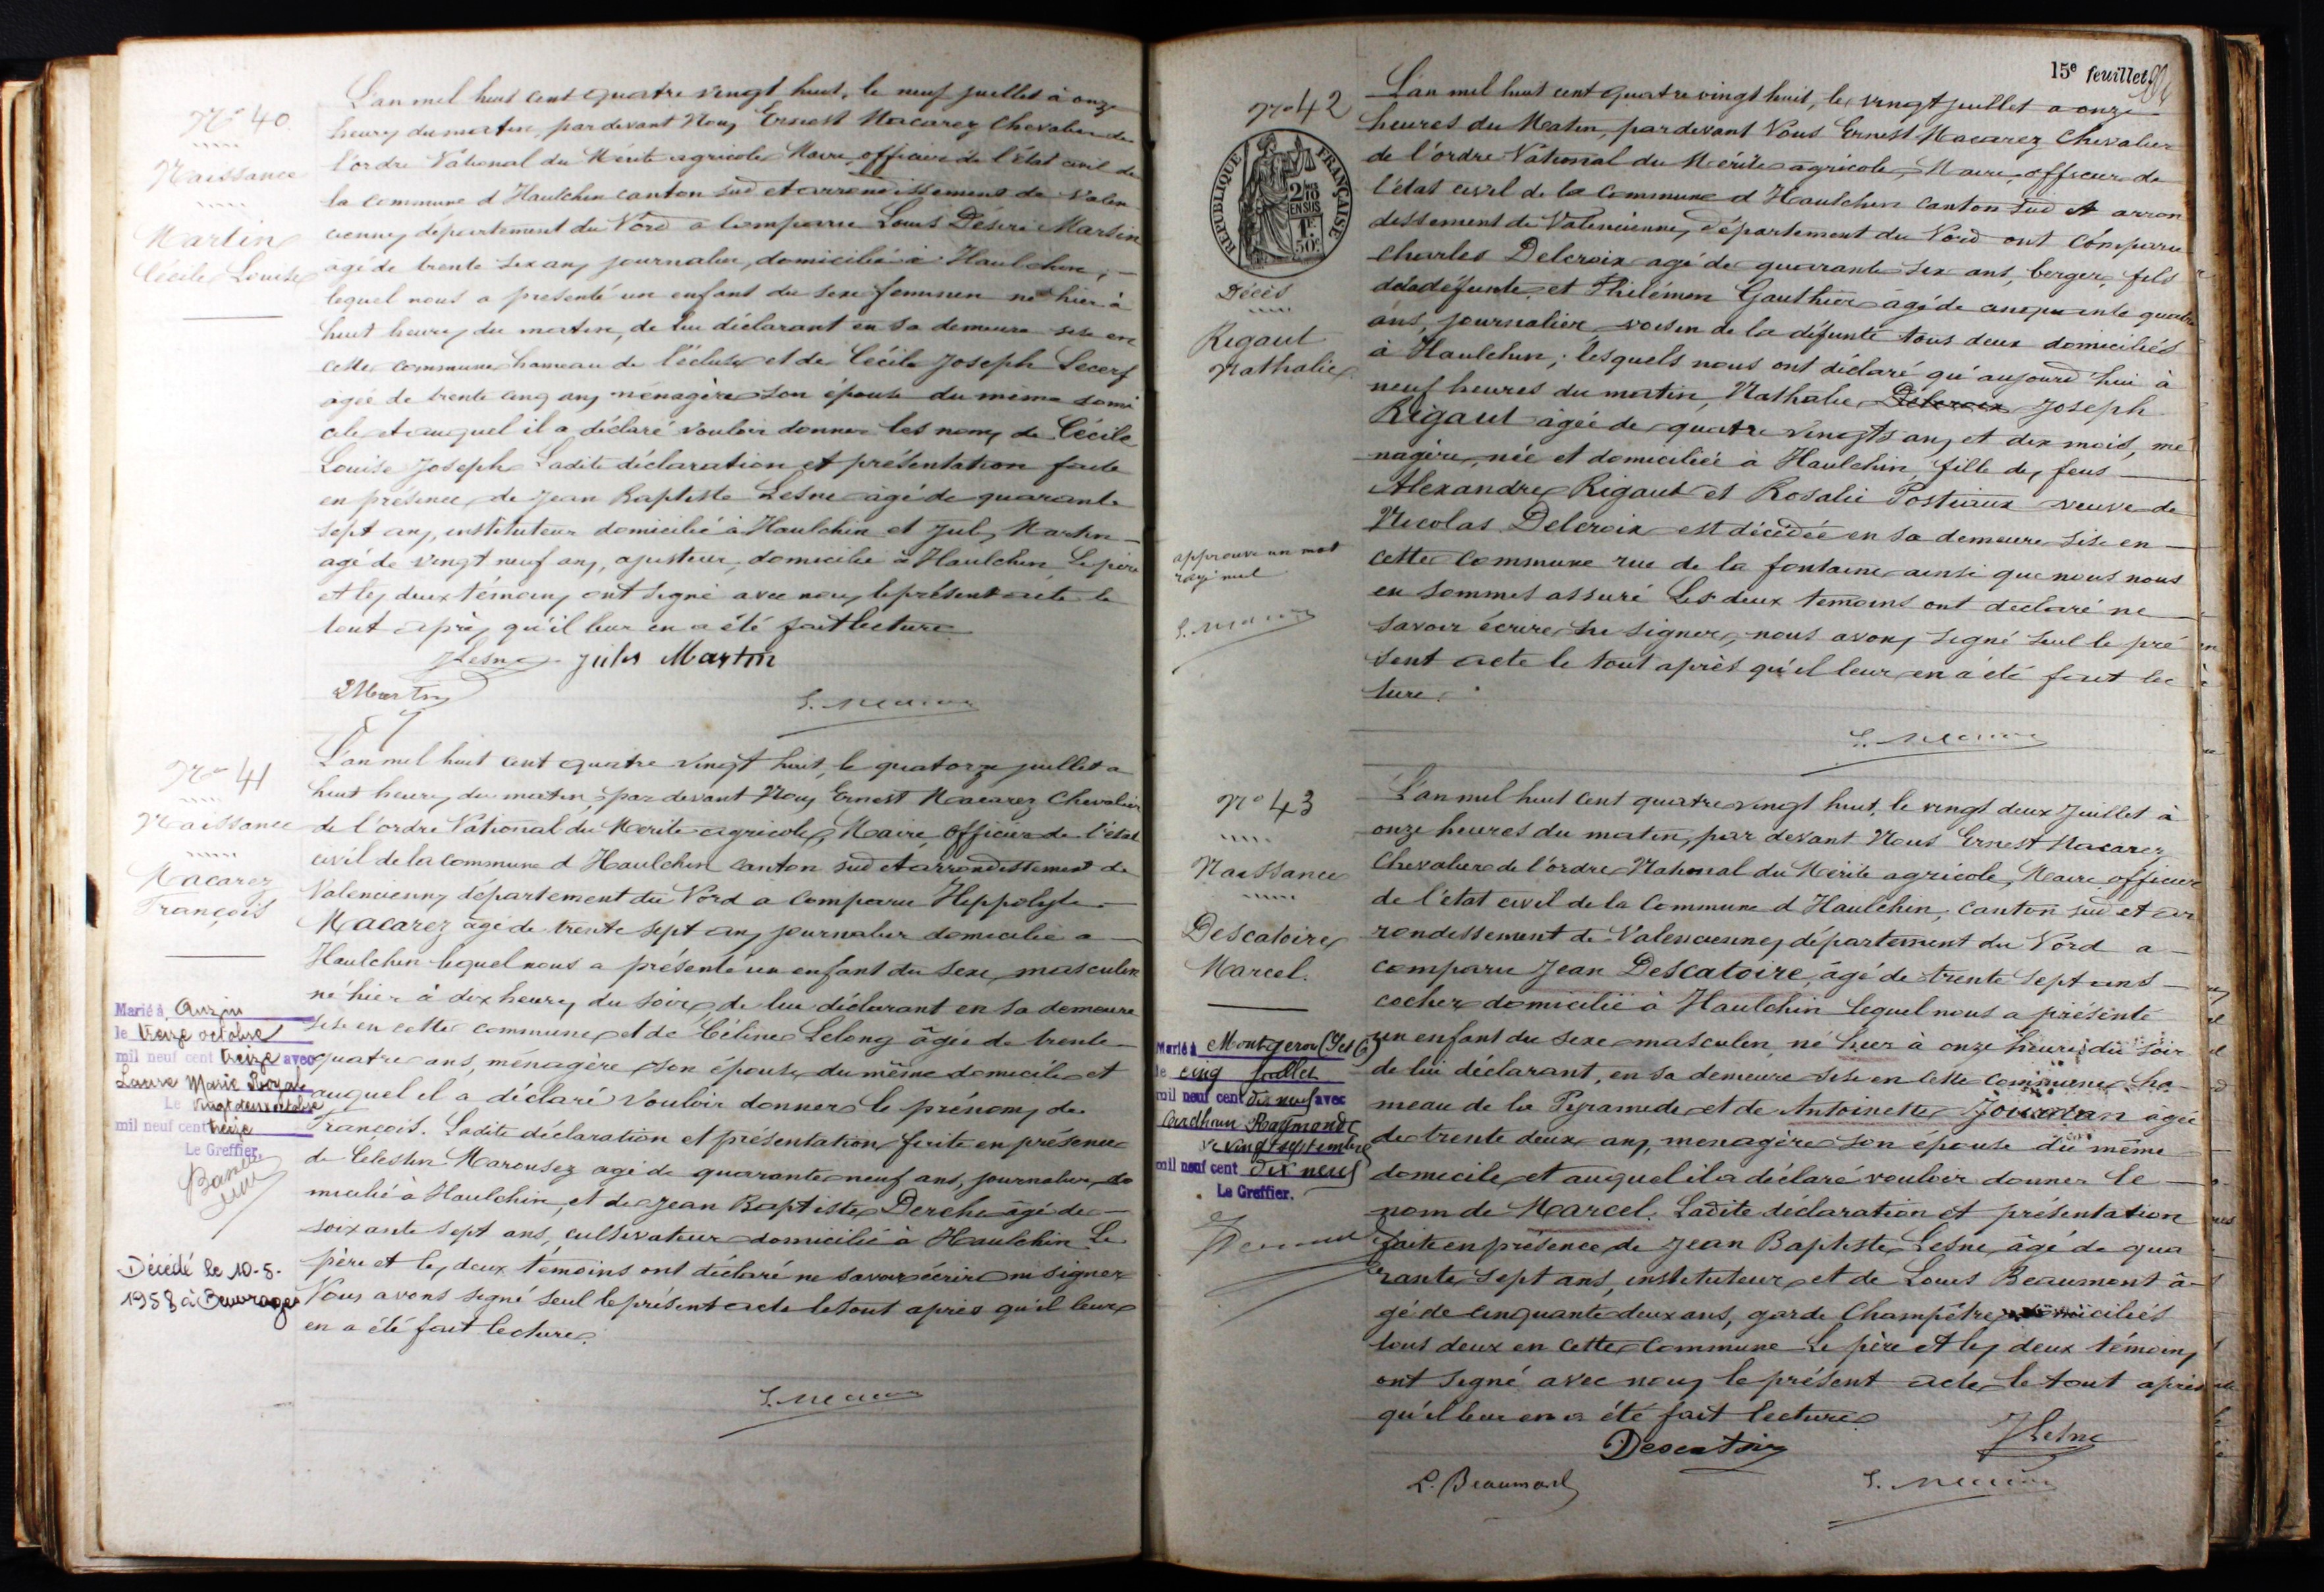 N° 40
Naissance
Martin
Cécile Louise
L'an mil huit cent quatre vingt huit, le neuf juillet à onze
heures du matin, par devant Nous Ernest Macarez Chevalier de
l'ordre National du Mérite agricole Maire, officier de l'état civil de
la commune d'Haulchin canton sud et arrondissement de Valen
ciennes département du Nord a comparu Louis Désiré Martin
âgé de trente six ans journalier, domicilié à Haulchin, —
lequel nous a présenté un enfant du sexe féminin né hier à
huit heures du matin, de lui déclarant en sa demeure sise en
cette commune hameau de l'écluse et de Cécile Joseph Lecerf
âgée de trente cinq ans ménagère son épouse du même domi
cile et auquel il a déclaré vouloir donner les noms de Cécile
Louise Joseph Ladite déclaration et présentation faite
en présence de Jean Baptiste Lesne âgé de quarante
sept ans, instituteur domicilié à Haulchin et Jules Martin —
âgé de vingt neuf ans, ajusteur, domicilié à Haulchin Le père
et les deux témoins ont signé avec nous le présent acte le
tout après qu'il leur en a été fait lecture
JLesne Jules Martin
LMartin
N° 41
Naissance
Macarez
François
L'an mil huit cent quatre vingt huit, le quatorze juillet a
huit heures du matin, par devant Nous Ernest Macarez Chevalier
de l'ordre National du Mérite agricole, Maire, officier de l'état
civil de la commune d'Haulchin canton sud et arrondissement de
Valenciennes département du Nord a comparu Hippolyte —
Macarez âgé de trente sept ans journalier domicilié a —
Haulchin lequel nous a présenté un enfant du sexe masculin
né hier à dix heures du soir, de lui déclarant en sa demeure
sise en cette commune et de Céline Lelong âgée de trente
quatre ans, ménagère son épouse du même domicile et
auquel il a déclaré vouloir donner le prénom de
François. Ladite déclaration et présentation faite en présence
de Célestin Marousez agé de quarante neuf ans, journalier do
micilié à Haulchin, et de Jean Baptiste Derche âgé de —
soixante sept ans, cultivateur domicilié à Haulchin Le
père et les deux témoins ont déclaré ne savoir écrire ni signer
Nous avons signé seul le présent acte le tout après qu'il leur
en a été fait lecture
Marié à Anzin
le treize octobre
mil neuf cent treize avec
Laure Marie
Le vingt deux octobre
mil neuf cent treize
Le Greffier,
Décédé le 10-5-
1958 à Beuvrages
15e feuillet
N° 42
RÉPUBLIQUE FRANÇAISE
2/10
EN SUS
1F
50c
Décès
Rigaut
Nathalie
approuvé un mot
rayé nul
L'an mil huit cent quatre vingt huit, le vingt juillet a onze
heures du Matin, par devant Nous Ernest Macarez Chevalier
de l'ordre National du Mérite agricole, Maire, officier de
l'état civil de la commune d'Haulchin canton sud et arron
dissement de Valenciennes, département du Nord ont comparu
Charles Delcroix agé de quarante six ans, berger, fils
de la défunte, et Philémon Gauthier âgé de cinquante quatre
ans, journalier voisin de la défunte tous deux domiciliés
à Haulchin; lesquels nous ont déclaré qu'aujourd'hui à
neuf heures du matin, Nathalie Delcroix Joseph
Rigaut âgée de quatre vingts ans et dix mois, mé
nagère, née et domiciliée à Haulchin, fille des feus —
Alexandre Rigaut et Rosalie Postiaux veuve de
Nicolas Delcroix est décédée en sa demeure sise en —
cette commune rue de la fontaine ainsi que nous nous
en sommes assuré Les deux témoins ont déclaré ne
savoir écrire ni signer, nous avons signé seul le pré
sent acte le tout après qu'il leur en a été fait lec
ture.
N° 43
Naissance
Descatoire
Marcel.
L'an mil huit cent quatre vingt huit, le vingt deux Juillet à
onze heures du matin, par devant Nous Ernest Macarez
Chevalier de l'ordre National du Mérite agricole, Maire officier
de l'état civil de la commune d'Haulchin, canton sud et ar
rondissement de Valenciennes département du Nord a —
comparu Jean Descatoire, âgé de trente sept ans —
cocher domicilié à Haulchin Lequel nous a présenté
un enfant du sexe masculin, né hier à onze heures du soir
de lui déclarant, en sa demeure sise en cette commune ha-
meau de la Pyramide et de Antoinette Jouradan agée
de trente deux ans, ménagère son épouse du même
domicile et auquel il a déclaré vouloir donner le —
nom de Marcel. Ladite déclaration et présentation
faite en présence de Jean Baptiste Lesne, âgé de qua
rante sept ans, instituteur et de Louis Beaumont â-
gé de cinquante deux ans, garde Champêtre, domiciliés
tous deux en cette commune Le père et les deux témoins
ont signé avec nous le présent acte, le tout après
qu'il leur en a été fait lecture
Descatoire JLesne
L. Beaumont
Marié à Montgeron (S et O)
le cinq Juillet
mil neuf cent dix neuf avec
Raymonde
Le vingt septembre
mil neuf cent dix neuf
Le Greffier.